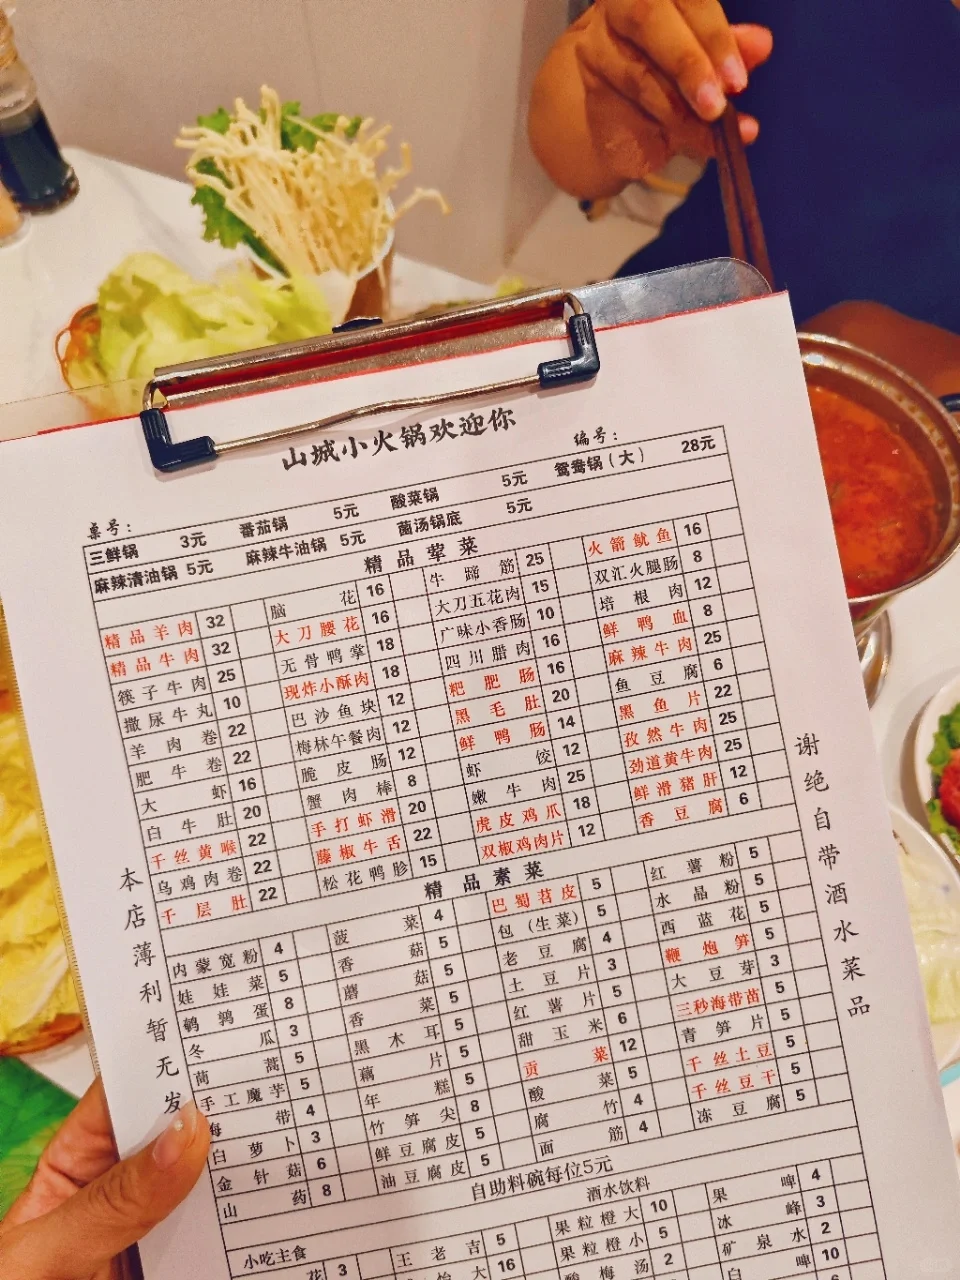 山城小火锅欢迎你
桌号： 编号：
三鲜锅 3元 番茄锅 5元 酸菜锅 5元 鸳鸯锅（大） 28元
麻辣清油锅 5元 麻辣牛油锅 5元 菌汤锅底 5元
精品荤菜
精品羊肉 32 脑花 16 牛蹄筋 25 火箭鱿鱼 16
精品牛肉 32 大刀腰花 16 大刀五花肉 15 双汇火腿肠 8
筷子牛肉 25 无骨鸭掌 18 广味小香肠 10 培根肉 12
撒尿牛丸 10 现炸小酥肉 18 四川腊肉 16 鲜鸭血 8
羊肉卷 22 巴沙鱼块 12 粑肥肠 16 麻辣牛肉 25
肥牛卷 22 梅林午餐肉 12 黑毛肚 20 鱼豆腐 6
大虾 16 脆皮肠 12 鲜鸭肠 14 黑鱼片 22
白牛肚 20 蟹肉棒 8 虾饺 12 孜然牛肉 25
千丝黄喉 22 手打虾滑 20 嫩牛肉 25 劲道黄牛肉 25
乌鸡肉卷 22 藤椒牛舌 22 虎皮鸡爪 18 鲜滑猪肝 12
千层肚 22 松花鸭胗 15 双椒鸡肉片 12 香豆腐 6
精品素菜
内蒙宽粉 4 菠菜 4 巴蜀苕皮 5 红薯粉 5
娃娃菜 5 香菇 5 包（生菜） 5 水晶粉 5
鹌鹑蛋 8 蘑菇 5 老豆腐 4 西蓝花 5
冬瓜 3 香菜 5 土豆片 3 鞭炮笋 5
茼蒿 5 黑木耳 5 红薯片 5 大豆芽 3
手工魔芋 5 藕片 5 甜玉米 6 三秒海带苗 5
海带 4 年糕 5 贡菜 12 青笋片 5
白萝卜 3 竹笋尖 8 酸菜 5 千丝土豆 5
金针菇 6 鲜豆腐皮 5 腐竹 4 千丝豆干 5
山药 8 油豆腐皮 5 面筋 4 冻豆腐 5
自助料碗每位5元
小吃主食 酒水饮料
花 3 王老吉 5 果粒橙大 10 果啤 4
大 16 果粒橙小 5 冰峰 3
酸梅汤 2 矿泉水 2
白啤 10
本店薄利暂无发
谢绝自带酒水菜品